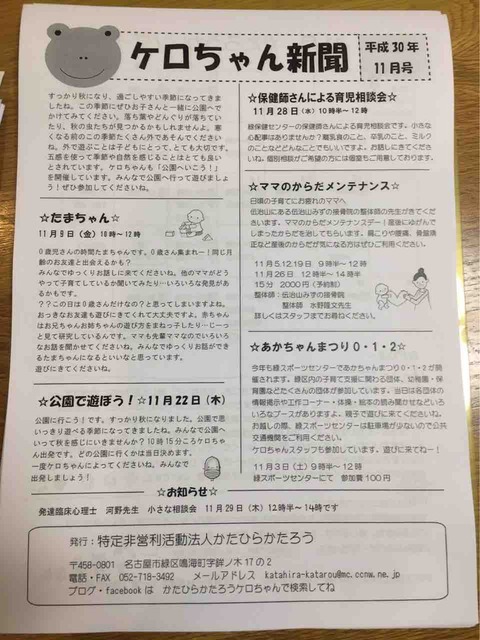 ケロちゃん新聞
平成30年
11月号
すっかり秋になり、過ごしやすい季節になってきま
したね。この季節にぜひお子さんと一緒に公園へで
かけてみてください。落ち葉やどんぐりが落ちてい
たり、秋の虫たちが見つかるかもしれませんよ。寒
くなる前のこの季節たくさん外であそんでください
ね。外で遊ぶことは子どもにとって、とても大切です。
五感を使って季節や自然を感じることはとても良い
とされています。ケロちゃんも「公園へいこう！」
を開催しています。みんなで公園へ行って遊びまし
ょう！ぜひ参加してくださいね。
☆たまちゃん☆
11月9日（金）10時～12時
0歳児さんの時間たまちゃんです。0歳さん集まれー！同じ月
齢のお友達と出会えるかも？
みんなでゆっくりお話しに来てくださいね。他のママがどう
やって子育てしているか聞いてみたり…いろいろな発見が
あるかもです。
？？この日は0歳さんだけなの？と思ってしまいますよね。
おっきなお友達も遊びにきてくれて大丈夫ですよ。赤ちゃん
はお兄ちゃんお姉ちゃんの遊び方をまねっ子したり…じーっ
と見て研究しているんです。ママも先輩ママなのでいろいろ
なお話を聞かせてくださいね。みんなでゆっくりお話ができ
るたまちゃんになるといいなと思っています。
遊びにきてくださいね。
☆公園で遊ぼう！☆11月22日（木）
公園に行こう！です。すっかり秋になりました。公園で思い
っきり遊べる季節になってきましたね。みんなで公園へ
いって秋を感じにいきませんか？10時15分ころケロちゃ
ん出発です。どの公園に行くかは当日決めます。
一度ケロちゃんによってくださいね。みんなで
出発しましょう！
☆保健師さんによる育児相談会☆
11月28日（水）10時半～12時
緑保健センターの保健師さんによる育児相談会です。小さな
心配事はありませんか？離乳食のこと、卒乳のこと、ミルク
のことなどどんなことでもいいですよ。お話しにきてくださ
いね。個別相談がご希望の方には個室もご用意しております。
☆ママのからだメンテナンス☆
日頃の子育てにお疲れのママへ
伝治山にある伝治山みずの接骨院の整体師の先生がきてくだ
さいます。ママのからだメンテナンスデー！産後にゆがんで
しまったからだを治してもらいます。肩こりや腰痛、骨盤矯
正など産後のからだが気になる方はぜひご利用ください。
11月5.12.19日 9時半～12時
11月26日 12時半～14時半
15分 2000円（予約制）
整体師：伝治山みずの接骨院
整体師 水野隆文先生
詳しくはスタッフまでお尋ねください。
☆あかちゃんまつり0・1・2☆
今年も緑スポーツセンターであかちゃんまつり0・1・2が開
催されます。緑区内の子育て支援に関わる団体、幼稚園・保
育園などたくさんの団体が参加しています。当日は各団体の
情報掲示や工作コーナー・体操・絵本の読み聞かせなどいろ
いろなブースがありますよ。親子で遊びに来てくださいね。
お越しの際、緑スポーツセンターは駐車場が少ないので公共
交通機関をご利用ください。
ケロちゃんスタッフも参加しています。遊びに来てねー！
11月3日（土）9時半～12時
緑スポーツセンターにて 参加費100円
☆お知らせ☆
発達臨床心理士 河野先生 小さな相談会 11月29日（木）12時半～14時です
発行：特定非営利活動法人かたひらかたろう
〒458-0801 名古屋市緑区鳴海町字鉾ノ木17の2
電話・FAX 052-718-3492 メールアドレス katahira-katarou@mc.ccnw.ne.jp
ブログ・facebookは かたひらかたろうケロちゃんで検索してね